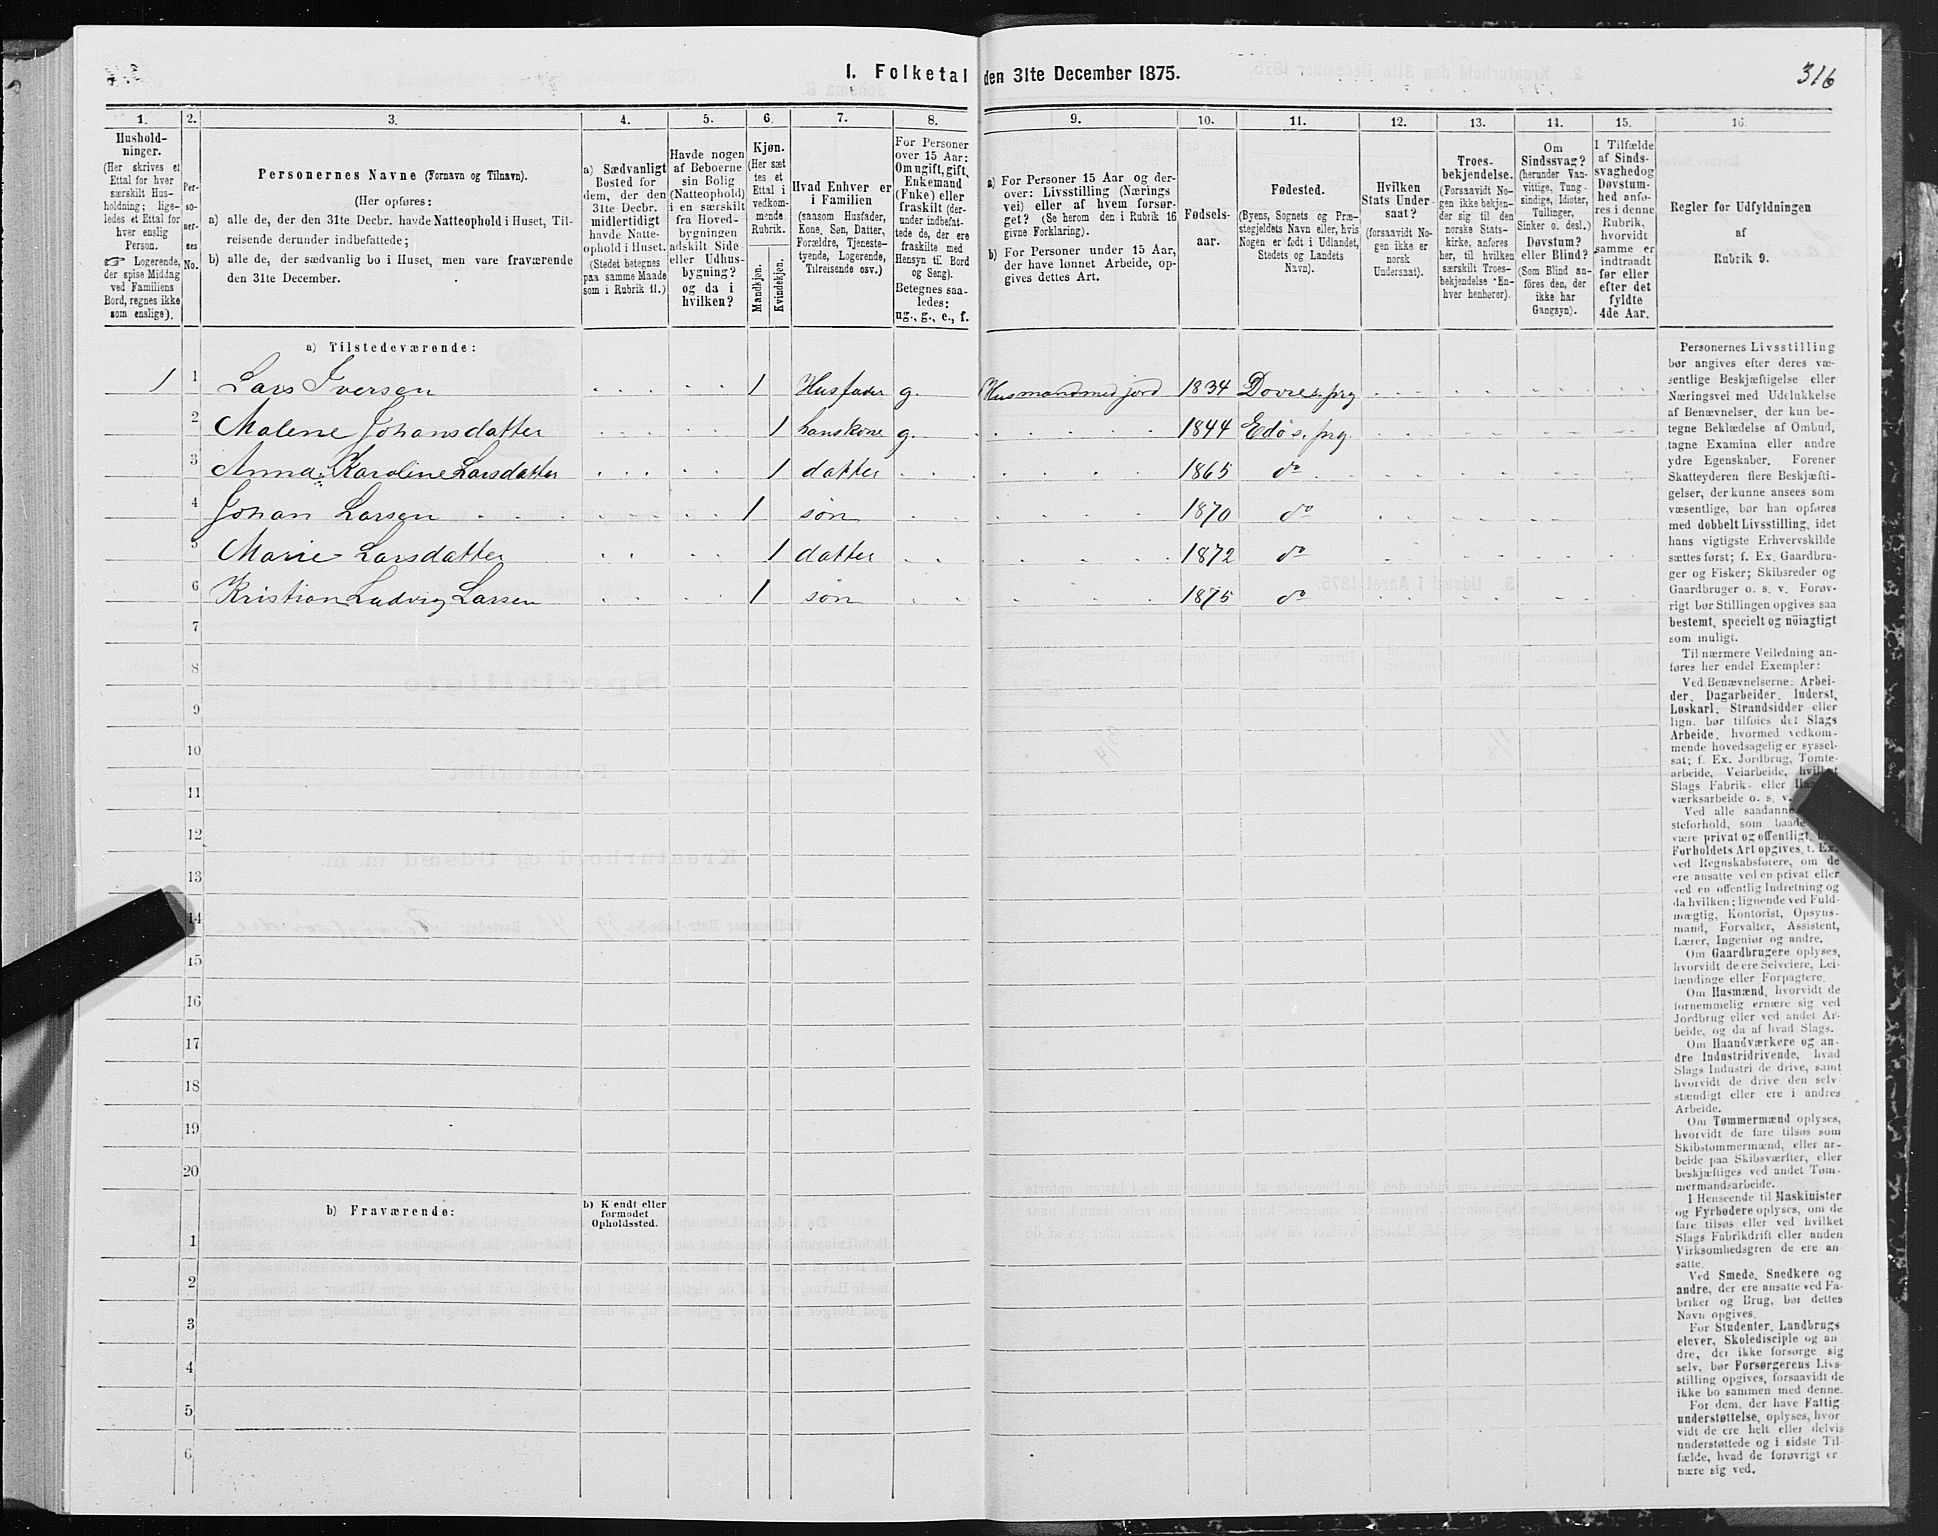 I. Folketal den 31te December 1875.
316
1. 2. 3. 4. 5. 6. 7. 8. 9. 10. 11. 12. 13. 14. 15. 16.
Hushold-
ninger.
(Her skrives et
Ettal for hver
særskilt Hus-
holdning; lige-
ledes et Ettal for
hver enslig
Person.
Logerende,
der spise Middag
ved Familiens
Bord, regnes ikke
som enslige).
Per-
so-
ner-
nes
No.
Personernes Navne (Fornavn og Tilnavn).
(Her opføres:
a) alle de, der den 31te Decbr. havde Natteophold i Huset, Til-
reisende derunder indbefattede;
b) alle de, der sædvanlig bo i Huset, men vare fraværende
den 31te December.
a) Sædvanligt
Bosted for
dem, der den
31te Decbr.
midlertidigt
havde Natte-
ophold i Huset.
(Stedet betegnes
paa samme Maade
som i Rubrik 11.)
Havde nogen
af Beboerne
sin Bolig
(Natteophold)
i en særskilt
fra Hoved-
bygningen
adskilt Side-
eller Udhus-
bygning?
og da i
hvilken?
Kjøn.
(Her sæt
tes et
Ettal i
vedkom-
mende
Rubrik.
Mandkjøn.
Kvindekjøn.
Hvad Enhver er
i Familien
(saasom Husfader,
Kone, Søn, Datter,
Forældre, Tjeneste-
tyende, Logerende,
Tilreisende osv.)
For Personer
over 15 Aar:
Om ugift, gift,
Enkemand
(Enke) eller
fraskilt (der-
under indbefat-
tede de, der ere
fraskilte med
Hensyn til Bord
og Seng).
Betegnes saa-
ledes:
ug., g., e., f.
a) For Personer 15 Aar og der-
over: Livsstilling (Nærings
vei) eller af hvem forsør-
get? (Se herom den i Rubrik 16
givne Forklaring).
b) For Personer under 15 Aar,
der have lønnet Arbeide, op-
gives dettes Art.
Fødsels-
aar.
Fødested.
(Byens, Sognets og Præ-
stegjeldets Navn eller, hvis
Nogen er født i Udlandet,
Stedets og Landets
Navn).
Hvilken
Stats Under-
saat?
(forsaavidt No-
gen ikke er
norsk
Undersaat).
Troes-
bekjendelse.
(Forsaavidt No-
gen ikke bekjen-
der sig til den
norske Stats-
kirke, anføres
her, til hvilken
særskilt Troes-
bekjendelse En-
hver henhører).
Om
Sindssvag?
(herunder Van-
vittige, Tung-
sindige, Idioter,
Tullinger,
Sinker o. desl.)
Døvstum?
eller Blind?
(Som Blind an-
føres den, der
ikke har
Gangsyn).
I Tilfælde
af Sinds-
svaghed og
Døvstum-
hed anfø-
res i denne
Rubrik,
hvorvidt
samme er
indtraadt
før eller
efter det
fyldte
4de Aar.
Regler for Udfyldningen
af
Rubrik 9.
a) Tilstedeværende:
1 1 Lars Iversen 1 Husfader g. Husmand med jord 1834 Dovre s. prg
2 Malene Johansdatter 1 hans kone g. 1844 Edø s. prg.
3 Anna Karoline Larsdatter 1 datter 1865 do
4 Johan Larsen 1 søn 1870 do
5 Marie Larsdatter 1 datter 1872 do
6 Kristian Ludvig Larsen 1 søn 1875 do
7
8
9
10
11
12
13
14
15
16
17
18
19
20
b) Fraværende:
b) Kendt eller
formodet
Opholdssted.
1
2
3
4
5
6
Personernes Livsstilling
bør angives efter deres væ-
sentlige Beskjæftigelse eller
Næringsvei med Udelukkelse
af Benævnelser, der kun be-
tegne Beklædelse af Ombud,
tagne Examina eller andre
ydre Egenskaber. Forener
Skatteyderen flere Beskjæfti-
gelser, der kunne ansees som
væsentlige, bør han opføres
med dobbelt Livsstilling, idet
hans vigtigste Erhvervskilde
sættes først; f. Ex. Gaardbru-
ger og Fisker; Skibsreder og
Gaardbruger o. s. v. Forøv-
rigt bør Stillingen opgives saa
bestemt, specielt og nöiagtigt
som muligt.
Til nærmere Veiledning an-
føres her endel Exempler:
Ved Benævnelserne: Arbei-
der, Dagarbeider, Inderst,
Løskarl, Strandsidder eller
lign. bør tilføies det Slags
Arbeide, hvormed vedkom-
mende hovedsagelig er syssel-
sat; f. Ex. Jordbrug, Tomte-
arbeide, Veiarbeide, hvilket
Slags Fabrik- eller
værksarbeide o. s. v.
Ved alle saadanne
steforhold, som baade
være privat og offentligt,
Forholdets Art opgives, f. Ex.
ved Regnskabsførere, om de
ere ansatte ved en privat eller
ved en offentlig Indretning og
da hvilken; lignende ved Fuld-
mægtig, Kontorist, Opsyns-
mand, Forvalter, Assistent,
Lærer, Ingeniør og andre.
Om Gaardbrugere oplyses,
hvorvidt de ere Selveiere, Lei-
lændinge eller Forpagtere.
Om Husmænd, hvorvidt de
fornemmelig ernære sig ved
Jordbrug eller ved andet Ar-
beide, og da af hvad Slags.
Om Haandværkere og an-
dre Industridrivende, hvad
Slags Industri de drive, samt
hvorvidt de drive den selv-
stændigt eller ere i andres
Arbeide.
Om Tømmermænd oplyses,
hvorvidt de fare tilsøs som
Skibstømmermænd, eller ar-
beide paa Skibsværfter, eller
beskjæftiges ved andet Tøm-
mermandsarbeide.
I Henseende til Maskinister
og Fyrbødere oplyses, om de
fare tilsøs eller ved hvilket
Slags Fabrikdrift eller anden
Virksomhedsgren de ere an-
satte.
Ved Smede, Snedkere og
andre, der ere ansatte ved Fa-
briker og Brug, bør dettes
Navn opgives.
For Studenter, Landbrugs
elever, Skoledisciple og an-
dre, der ikke forsørge sig
selv, bør Forsørgerens Livs-
stilling opgives, forsaavidt de
ikke bo sammen med denne.
For dem, der have Fattig-
understøttelse, oplyses, hvor-
vidt de ere helt eller delvis
understøttede og i sidste Til-
fælde, hvad de forøvrigt er
nære sig ved.